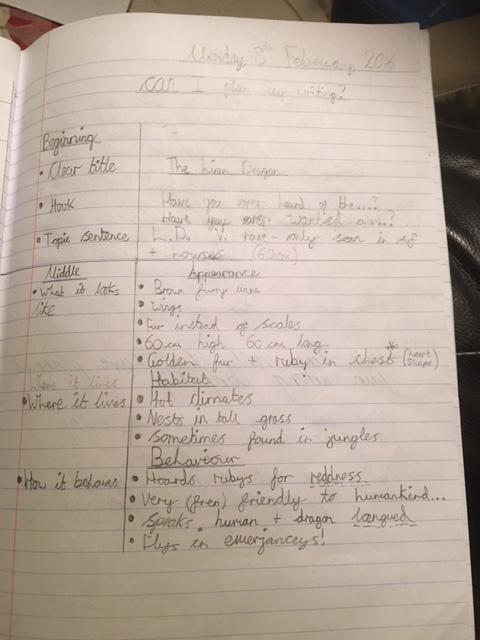 Monday 8th February, 2016
Can I plan my writing?
Beginning
• Clear title The Lion Dragon
• Hook Have you ever heard of the....?
Have you ever wanted a....?
• Topic sentence L.D. V. rare - only seen in
+ houses (60cm)
Middle Appearance
• What it looks • Brown furry mane
like • Wings
• Fur instead of scales
• 60 cm high 60 cm long
• Golden fur + ruby in chest * (heart shape)
Where it lives Habitat
• Where it lives • Hot climates
• Nests in tall grass
• Sometimes found in jungles
Behaviour
• How it behaves • Hoards rubys for reddness
• Very (fren) friendly to humankind...
• Speaks human + dragon langued
• Flys in emerjanceys!